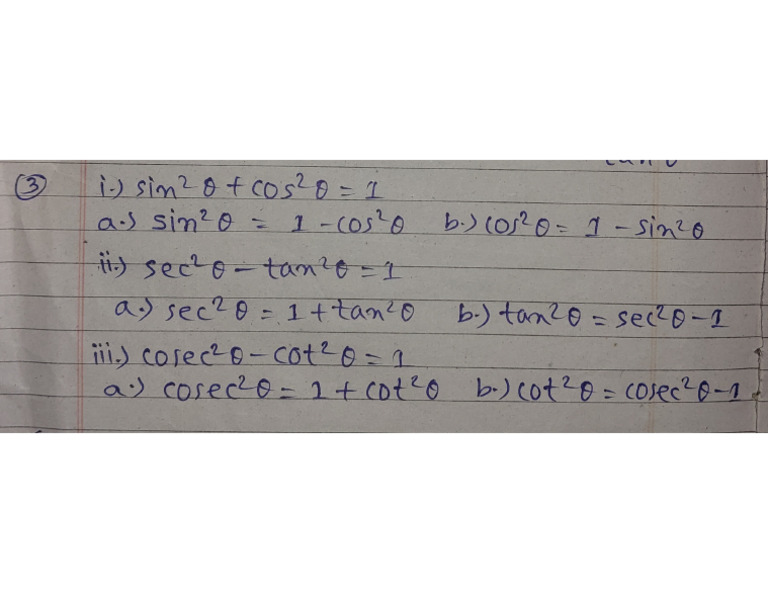 ③ i.) sin²θ + cos²θ = 1
a.) sin²θ = 1 - cos²θ b.) cos²θ = 1 - sin²θ
ii.) sec²θ - tan²θ = 1
a.) sec²θ = 1 + tan²θ b.) tan²θ = sec²θ - 1
iii.) cosec²θ - cot²θ = 1
a.) cosec²θ = 1 + cot²θ b.) cot²θ = cosec²θ - 1